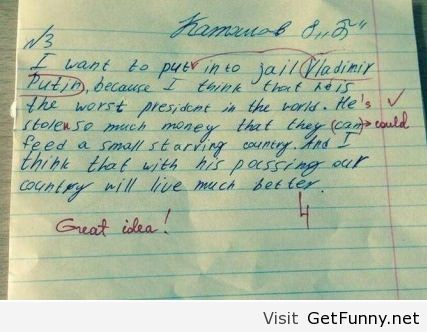 Каталов 8 "Б"
N3
I want to put into jail Vladimir
Putin, because I think that he is
the worst president in the world. He's
stolen so much money that they can could
feed a small starving country. And I
think that with his pocssing our
country will live much better.
Great idea!
4
Visit GetFunny.net